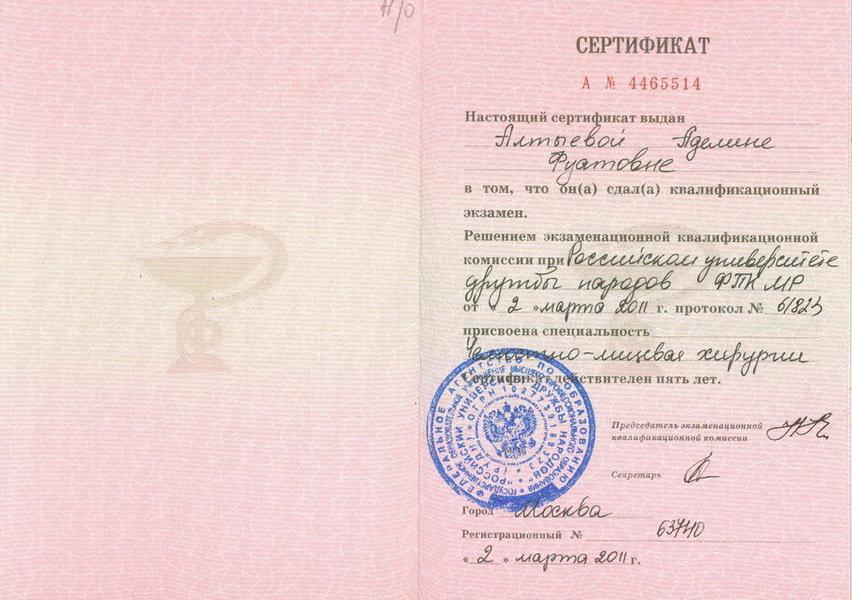 СЕРТИФИКАТ
А № 4465514
Настоящий сертификат выдан
Алтыевой Аделине
Фуатовне
в том, что он(а) сдал(а) квалификационный
экзамен.
Решением экзаменационной квалификационной
комиссии при Российском университете
дружбы народов ФПК МР
от « 2 » марта 2011 г. протокол №
присвоена специальность
Челюстно-лицевая хирургия
Сертификат действителен пять лет.
Председатель экзаменационной
квалификационной комиссии
Секретарь
Город Москва
Регистрационный №
« 2 » марта 2011 г.
ФЕДЕРАЛЬНОЕ АГЕНТСТВО ПО ОБРАЗОВАНИЮ